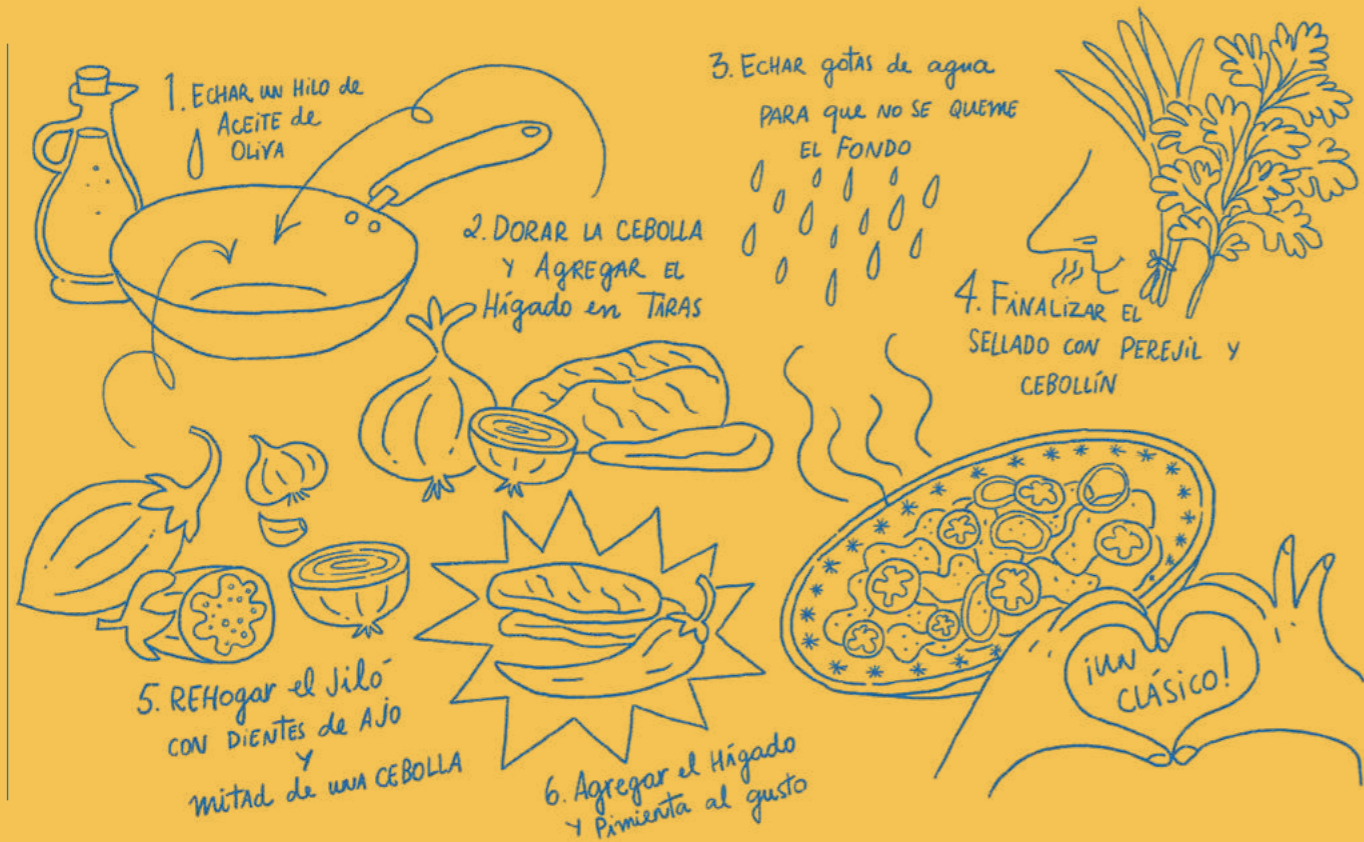 1. ECHAR UN HILO de
ACEITE DE
OLIVA
2. DORAR LA CEBOLLA
Y AGREGAR EL
Hígado en TIRAS
3. ECHAR gotas de agua
PARA que NO SE QUEME
EL FONDO
4. FINALIZAR EL
SELLADO CON PEREJIL Y
CEBOLLÍN
5. REHogar el Jiló
CON DIENTES de AJO
Y
mitad de UNA CEBOLLA
6. Agregar el Hígado
Y Pimienta al gusto
¡UN
CLÁSICO!